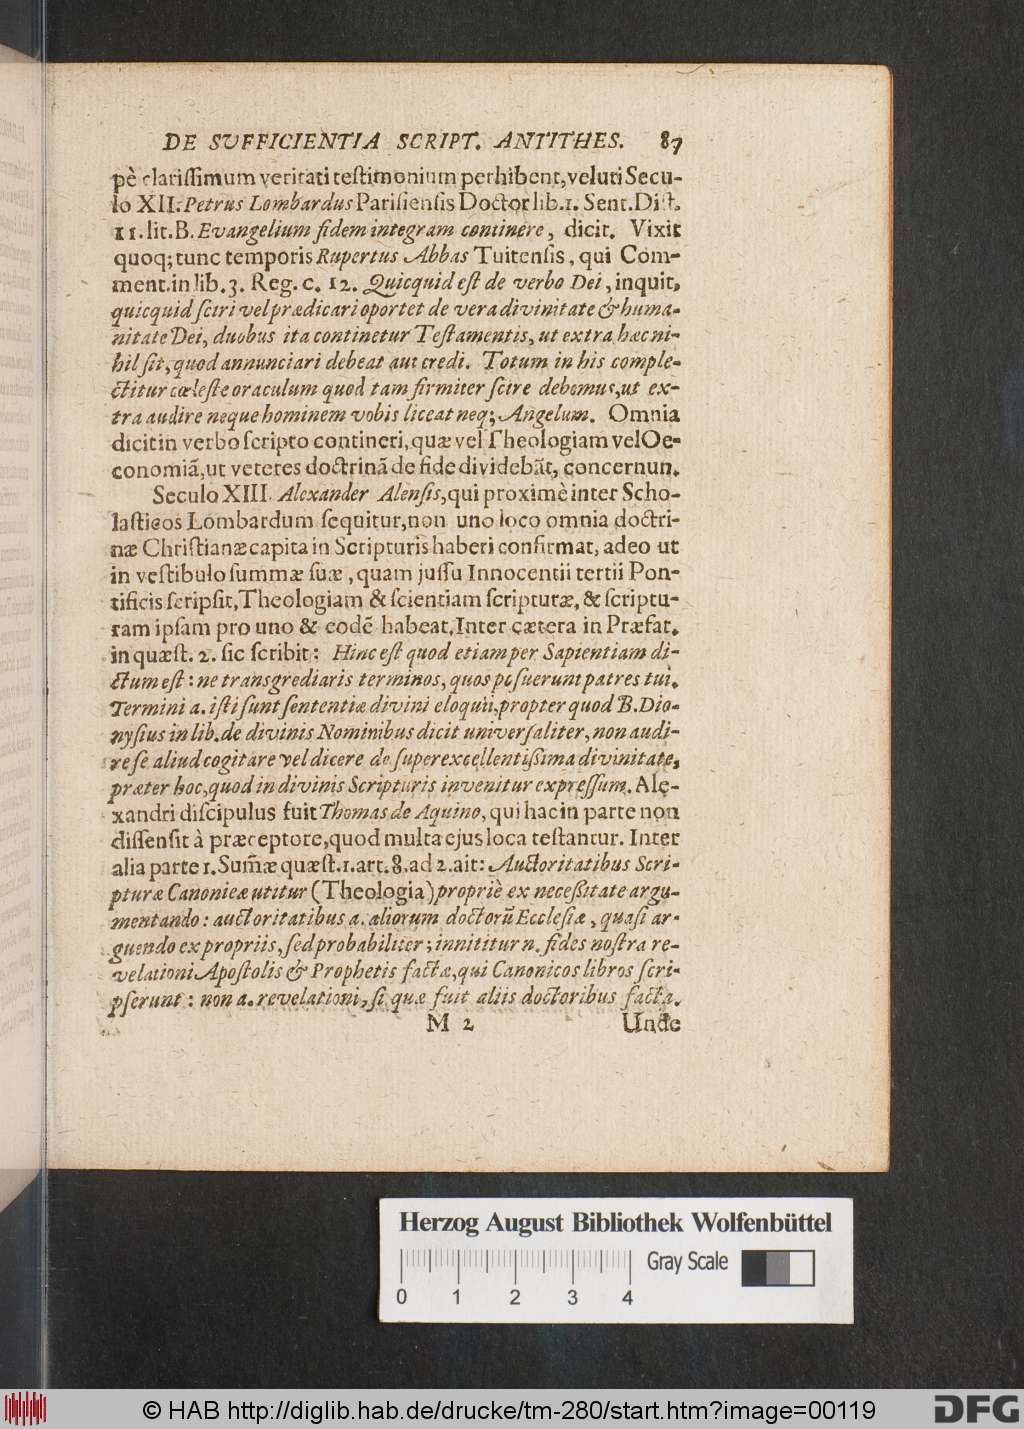 DE SVFFICIENTIA SCRIPT. ANTITHES. 87
pè clarissimum veritati testimonium perhibent, veluti Secu-
lo XII. Petrus Lombardus Parisiensis Doctor lib. 1. Sent. Dist.
11. lit. B. Evangelium fidem integram continere, dicit. Vixit
quoq; tunc temporis Rupertus Abbas Tuitensis, qui Com-
ment. in lib. 3. Reg. c. 12. Quicquid est de verbo Dei, inquit,
quicquid sciri vel prædicari oportet de vera divinitate & huma-
nitate Dei, duobus ita continetur Testamentis, ut extra hæc ni-
hil sit, quod annunciari debeat aut credi. Totum in his comple-
ctitur cœleste oraculum quod tam firmiter scire debemus, ut ex-
tra audire neque hominem vobis liceat neq; Angelum. Omnia
dicit in verbo scripto contineri, quæ vel Theologiam vel Oe-
conomiã, ut veteres doctrinã de fide dividebãt, concernun.
Seculo XIII. Alexander Alensis, qui proximè inter Scho-
lasticos Lombardum sequitur, non uno loco omnia doctri-
næ Christianæ capita in Scripturis haberi confirmat, adeo ut
in vestibulo summæ suæ, quam jussu Innocentii tertii Pon-
tificis scripsit, Theologiam & scientiam scripturæ, & scriptu-
ram ipsam pro uno & eodẽ habeat. Inter cætera in Præfat.
in quæst. 2. sic scribit: Hinc est quod etiam per Sapientiam di-
ctum est: ne transgrediaris terminos, quos posuerunt patres tui.
Termini a. isti sunt sententiæ divini eloquii, propter quod B. Dio-
nysius in lib. de divinis Nominibus dicit universaliter, non audi-
re se aliud cogitare vel dicere de superexcellentissima divinitate,
præter hoc, quod in divinis Scripturis invenitur expressum. Ale-
xandri discipulus fuit Thomas de Aquino, qui hac in parte non
dissensit à præceptore, quod multa ejus loca testantur. Inter
alia parte 1. Sum̃æ quæst. 1. art. 8. ad 2. ait: Auctoritatibus Scri-
pturæ Canonicæ utitur (Theologia) propriè ex necessitate argu-
mentando: auctoritatibus a. aliorum doctorũ Ecclesiæ, quasi ar-
guendo ex propriis, sed probabiliter; innititur n. fides nostra re-
velationi Apostolis & Prophetis factæ, qui Canonicos libros scri-
pserunt: non a. revelationi, si quæ fuit aliis doctoribus facta.
M 2 Unde
Herzog August Bibliothek Wolfenbüttel
Gray Scale
0 1 2 3 4
© HAB http://diglib.hab.de/drucke/tm-280/start.htm?image=00119
DFG